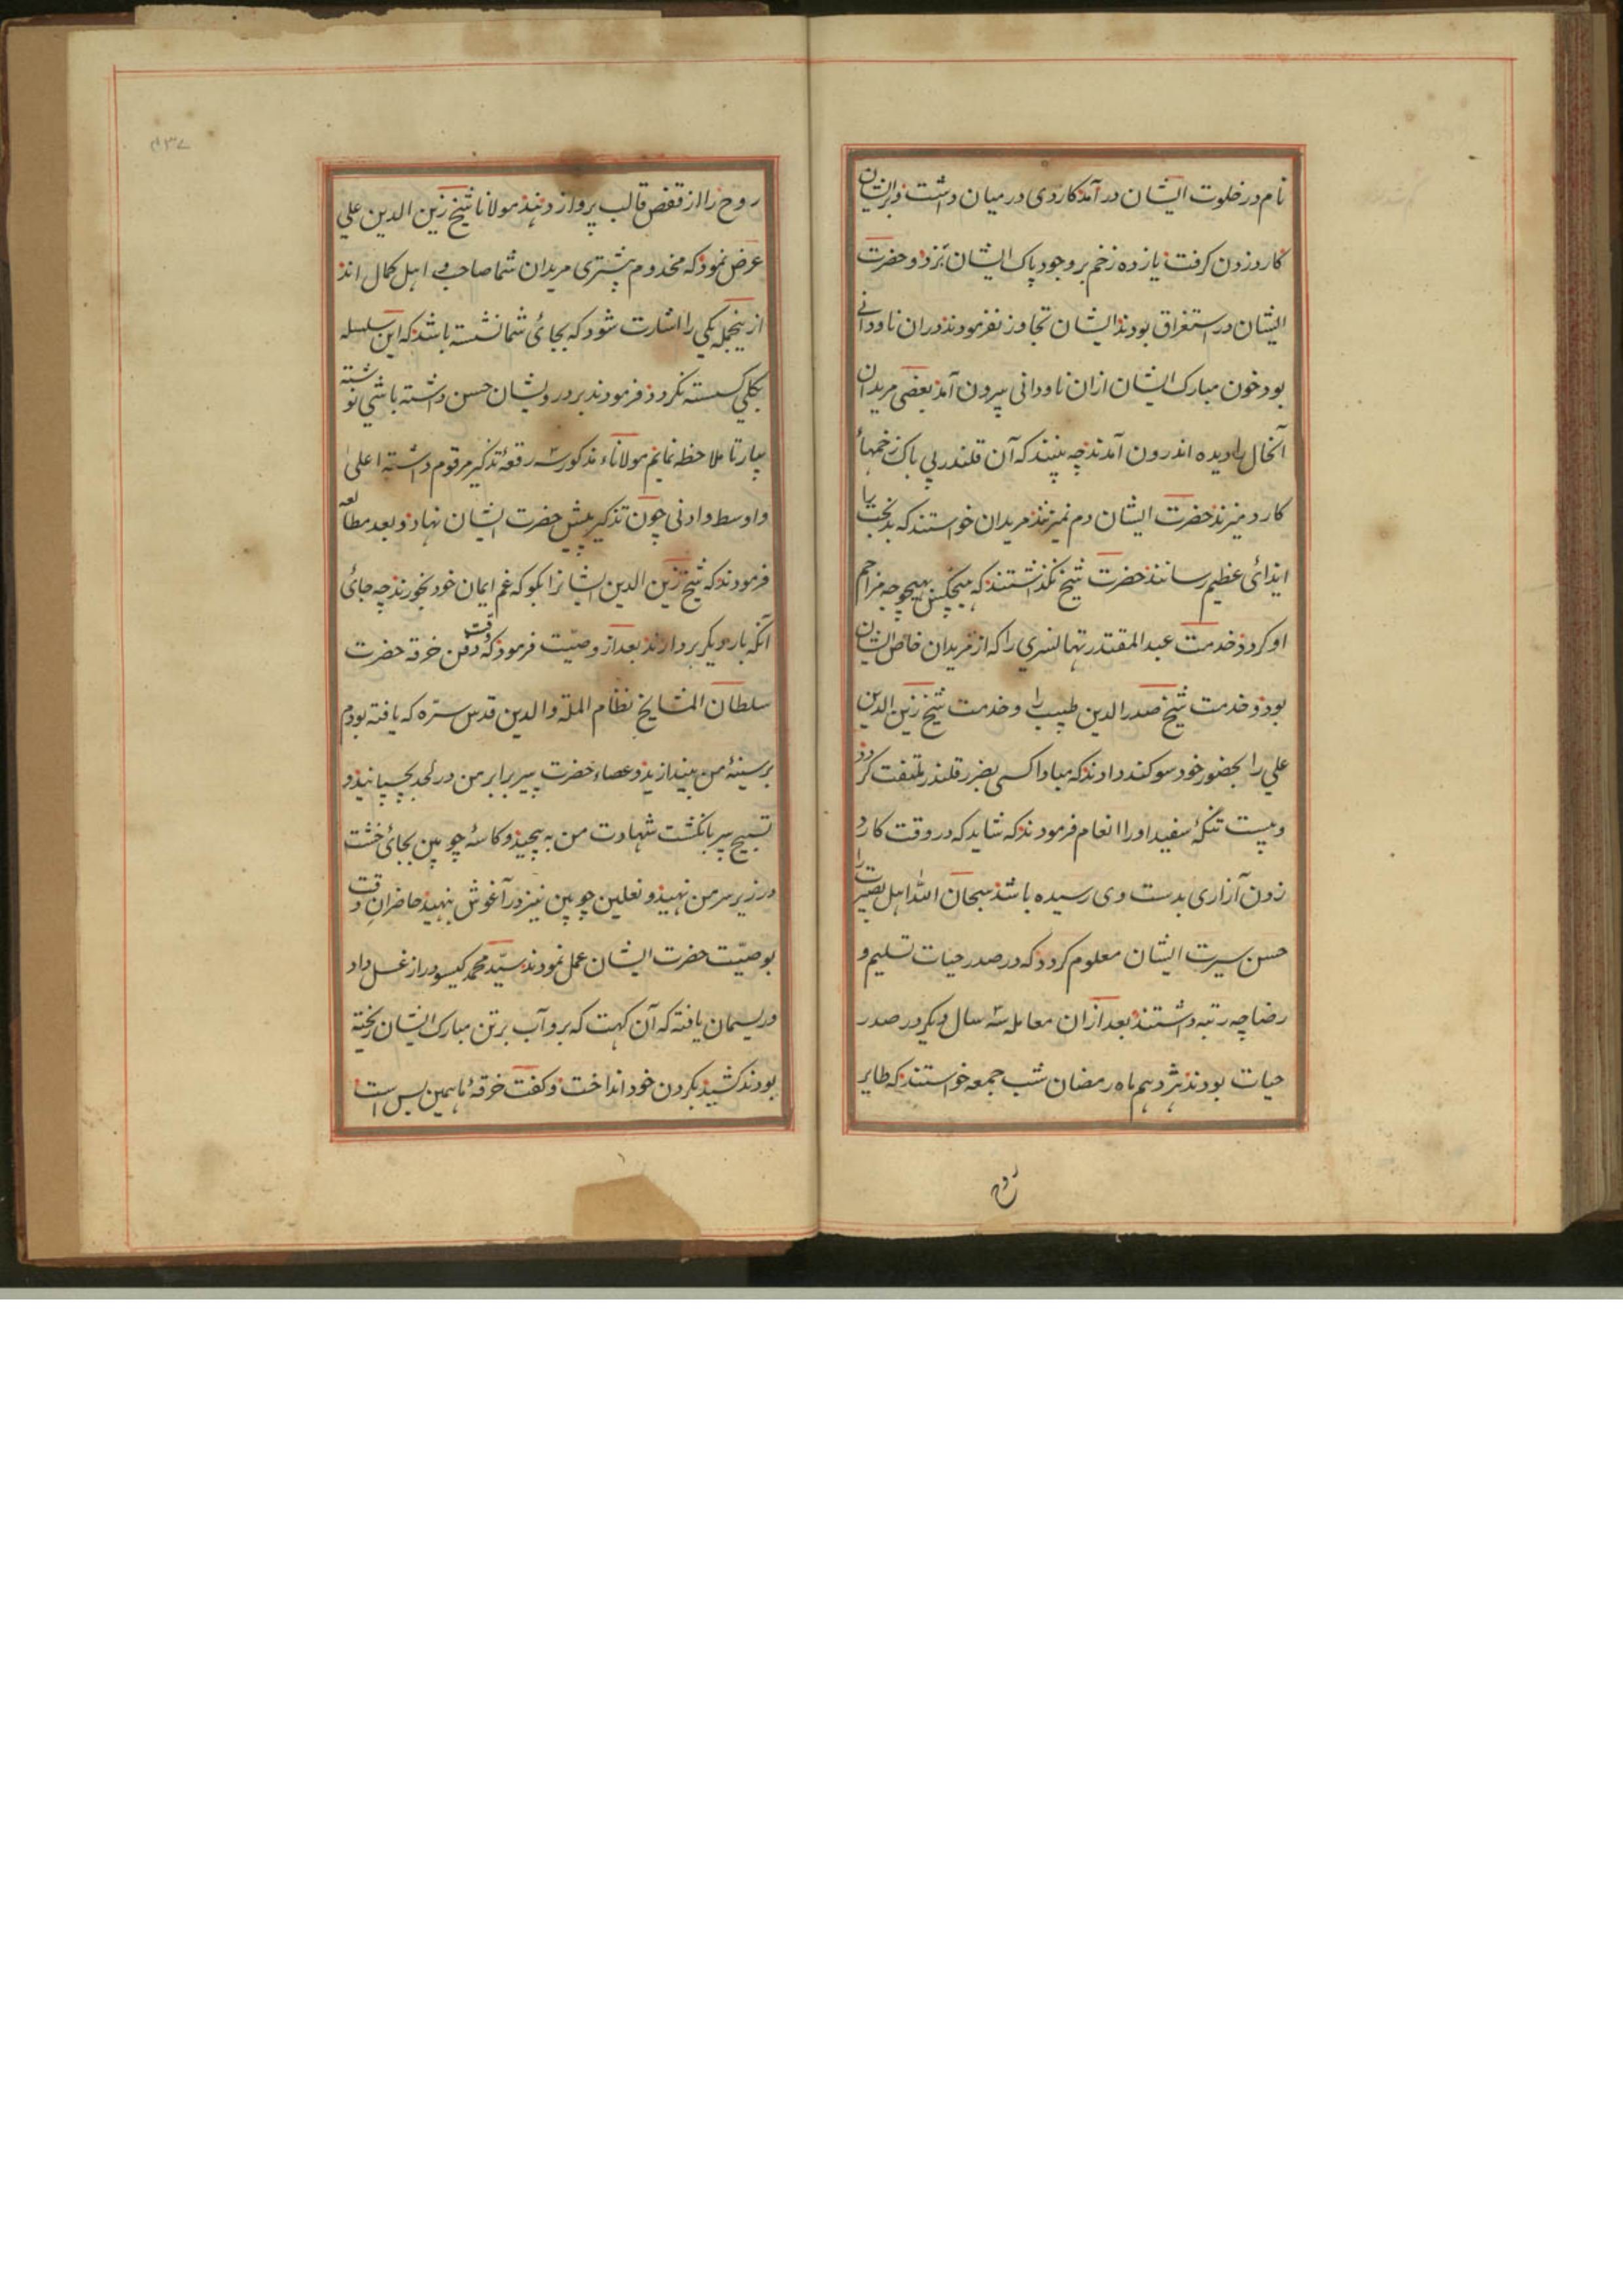 نام در خلوت ایشان در آمد کاردی در میان داشت و بر ایشان
کارد زدن گرفت یازده زخم بر وجود پاک ایشان بزد و حضرت
ایشان در استغراق بودند ایشان تجاوز نفرمودند در ان ناودانی
بود خون مبارک ایشان ازان ناودانی بیرون آمد بعضی مریدان
آنحال را دیده اندرون آمدند چه بینند که آن قلندر بی باک زخمهاٴ
کارد میزند حضرت ایشان دم نمیزنند مریدان خواستند که بدبخت را
ایذائی عظیم رسانند حضرت شیخ نگذاشتند که هیچکس بهیچوجه مزاحم
او گردد خدمت عبد المقتدر تهانسری را که از مریدان خاص ایشان
بود و خدمت شیخ صدر الدین طبیب را و خدمت شیخ زین الدین
علی را بحضور خود سوگند دادند که مبادا کسی بضرر قلندر ملتفت گردد
و بیست تنگهٔ سفید او را انعام فرمودند که شاید که در وقت کارد
زدن آزاری بدست وی رسیده باشد سبحان الله اهل بصیرت را
حسن سیرت ایشان معلوم گردد که در صدر حیات تسلیم و
رضا چه رتبه داشتند بعد ازان معامله سه سال دیگر در صدر
حیات بودند هژدهم ماه رمضان شب جمعه خواستند که طایر
روح
روح را از قفص قالب پرواز دهند مولانا شیخ زین الدین علی
عرض نمود که مخدوم بیشتری مریدان شما صاحب اهل کمال اند
ازینجمله یکی را اشارت شود که بجائ شما نشسته باشد که این سلسله
بکلی گسسته نگردد فرمودند بر درویشان حسن داشته باشی نوشته
بیار تا ملاحظه نمایم مولاناء مذکور سه رقعهٔ تذکیر مرقوم داشته اعلی
و اوسط و ادنی چون تذکیر پیش حضرت ایشان نهاد و بعد مطالعه
فرمودند که شیخ زین الدین ایشانرا بگو که غم ایمان خود بخورند چه جائ
آنکه بار دیگر بردارند بعد از وصیت فرمود که وقت دفن خرقه حضرت
سلطان المشایخ نظام الملة والدین قدس سره که یافته بودم
بر سینهٔ من بیندازید و عصاء حضرت پیر برابر من در لحد بچسپانید و
تسبیح پیر بانگشت شهادت من به پیچید و کاسهٔ چوبین بجائ خشت
در زیر سر من نهید و نعلین چوبین نیز در آغوش بنهید حاضران وقت
بوصیت حضرت ایشان عمل نمودند سید محمد گیسودراز غسل داد
و ریسمان یافته که آن کهت که برو آب بر تن مبارک ایشان ریخته
بودند کشید بگردن خود انداخت و گفت خرقهٔ ما همین بس است